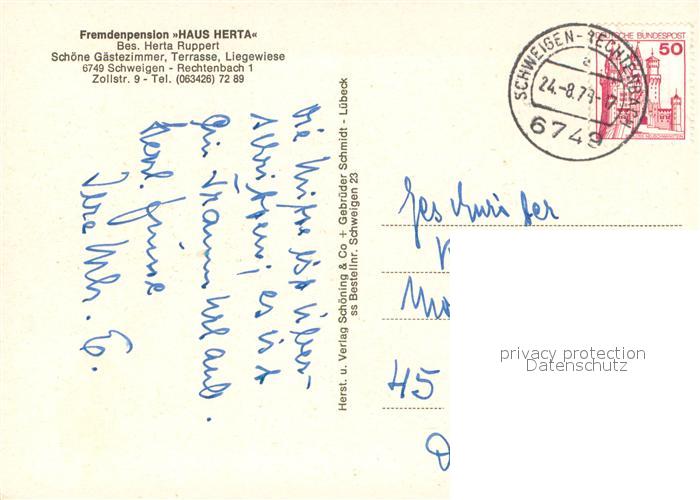 Fremdenpension »HAUS HERTA«
Bes. Herta Ruppert
Schöne Gästezimmer, Terrasse, Liegewiese
6749 Schweigen - Rechtenbach 1
Zollstr. 9 - Tel. (063426) 72 89
Die Hitze ist über-
es ist
Ein Traum Urlaub.
Herzl. Grüße
Ihre
Herst. u. Verlag Schöning & Co + Gebrüder Schmidt - Lübeck
ss Bestellnr. Schweigen 23
SCHWEIGEN-RECHTENBACH
a
24.-8.79-17
6749
DEUTSCHE BUNDESPOST
50
Geschwister
45
privacy protection
Datenschutz